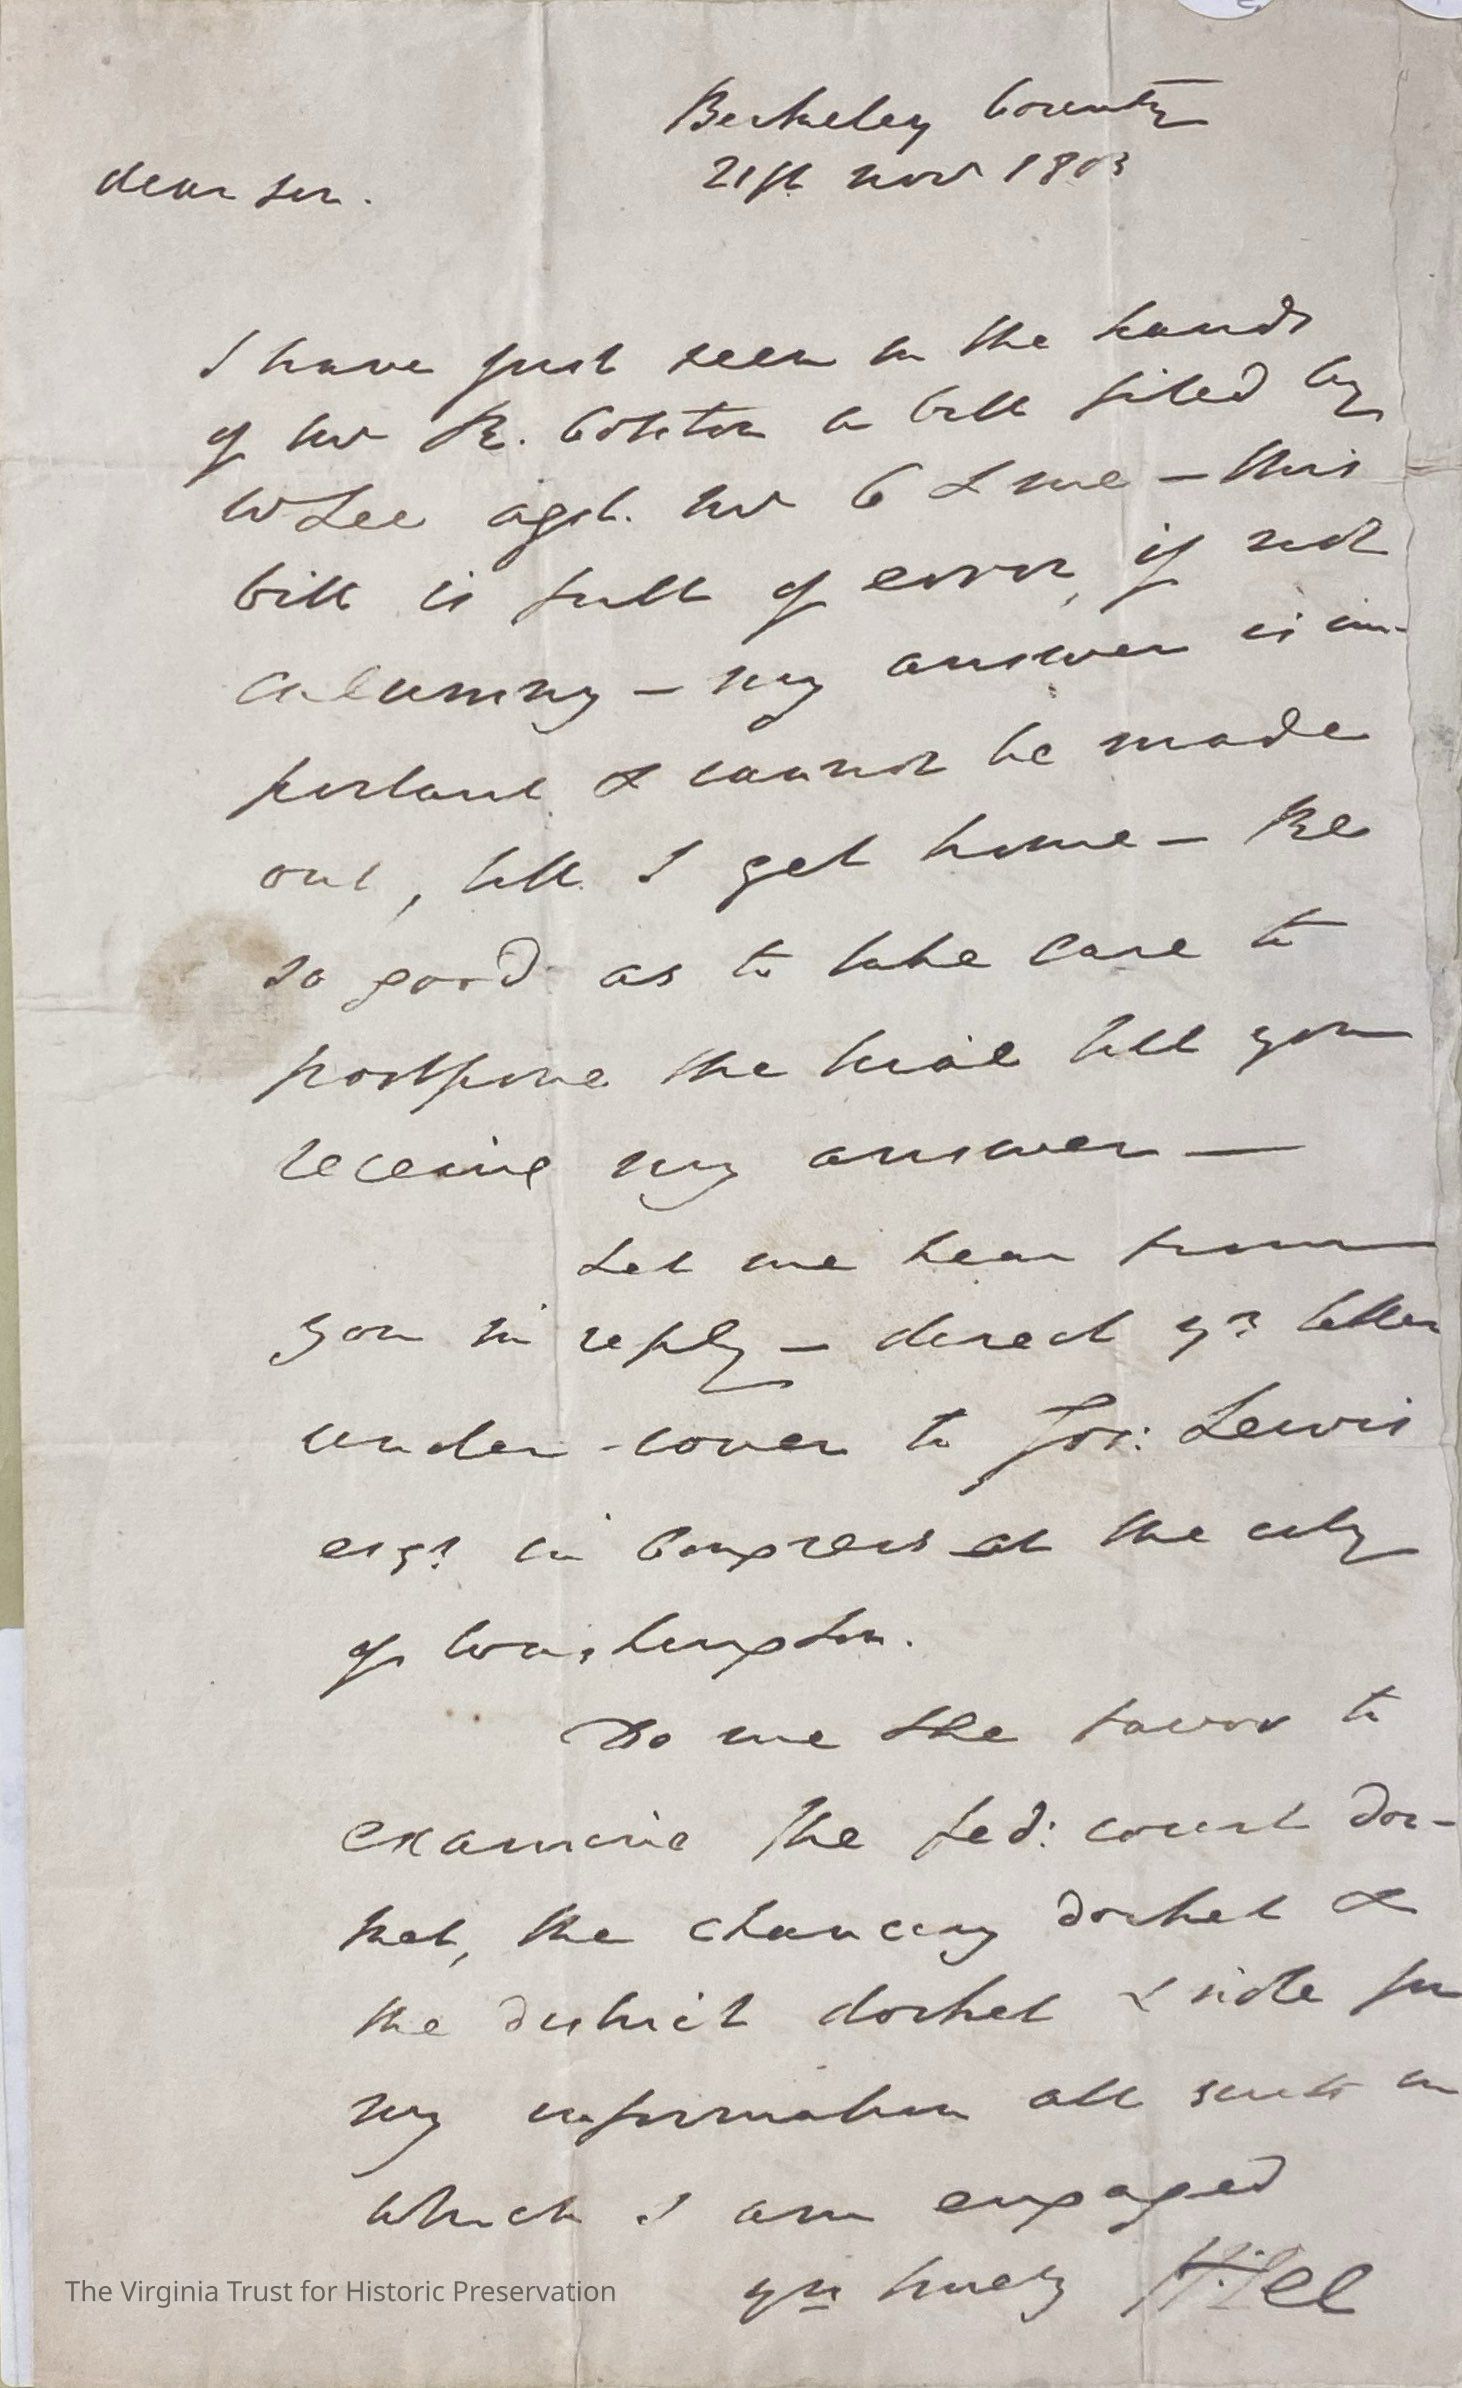 Berkeley County
21st novr 1803
dear sir.
I have just seen in the hands
of Mr R. Colston a bill filed by
W Lee agst. Mr C & me – this
bill is full of error, if not
calumny – my answer is im-
portant & cannot be made
out, till I get home – Be
so good as to take care to
postpone the trial till you
receive my answer —
Let me hear from
you in reply – direct yr letter
under cover to Jos: Lewis
esqr in Congress at the city
of Washington.
Do me the favor to
examine the fed: court doc-
ket, the chancery docket &
the district docket & note for
my information all suits in
which I am engaged
yrs truly H: Lee
The Virginia Trust for Historic Preservation